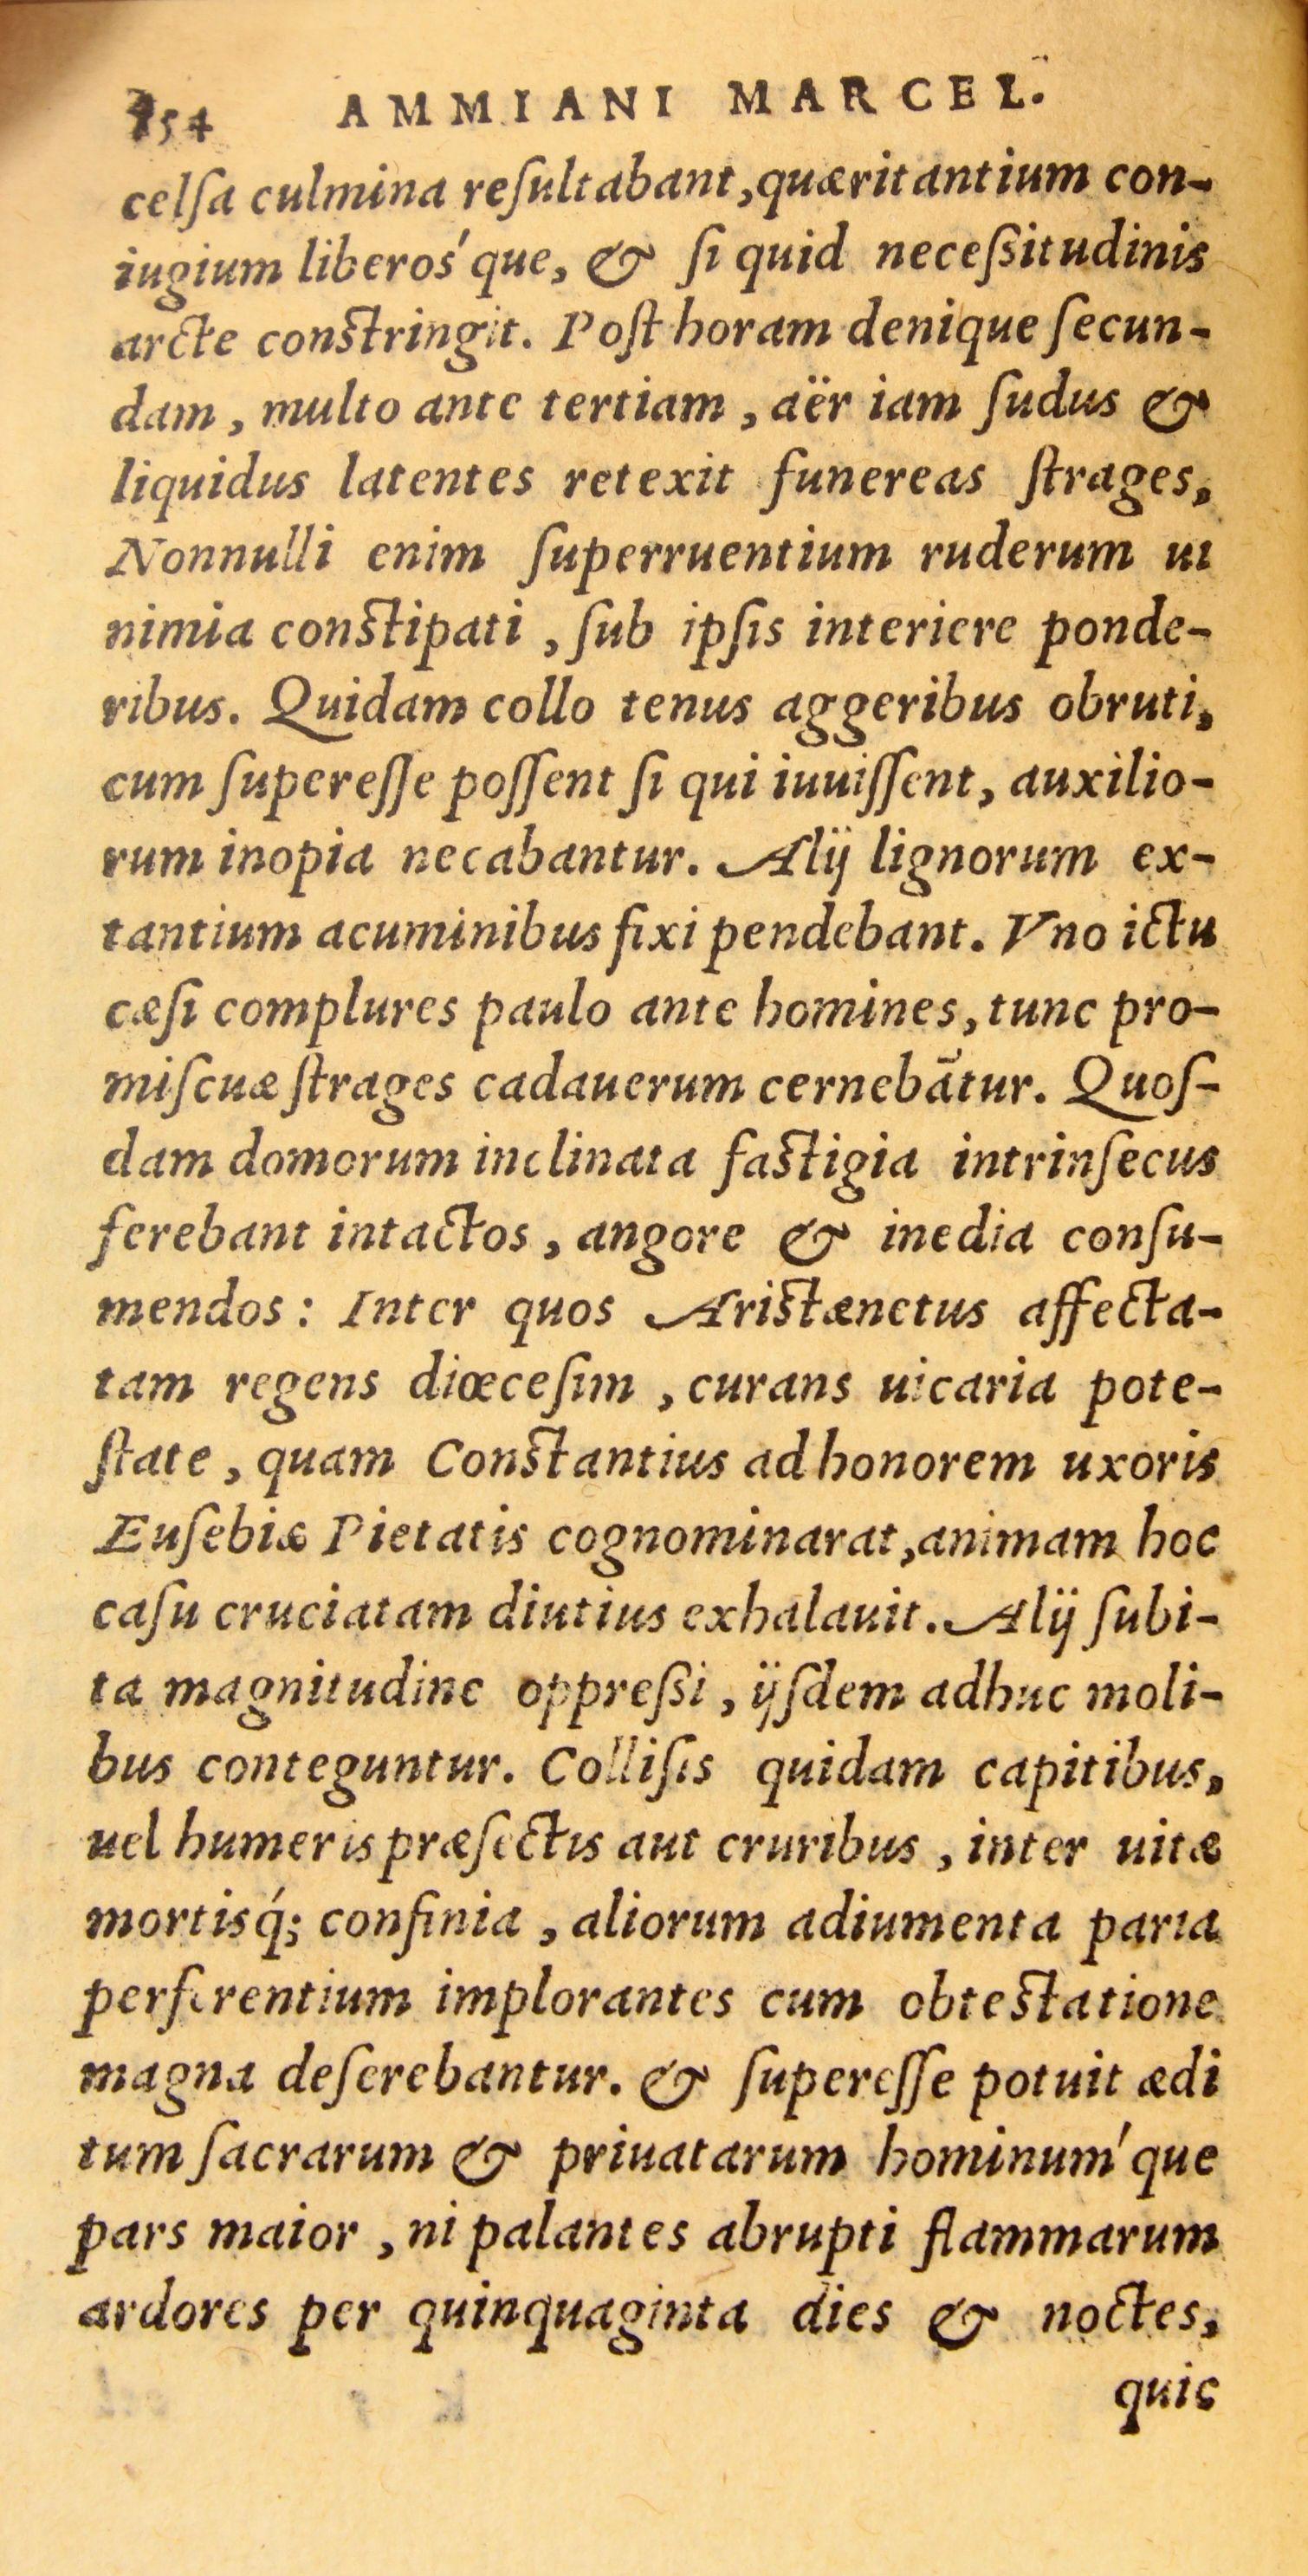 154 AMMIANI MARCEL.
celſa culmina reſultabant, quæritantium con-
iugium liberos´que, & ſi quid neceſsitudinis
arcte conſtringit. Poſt horam denique ſecun-
dam, multo ante tertiam, aër iam ſudus &
liquidus latentes retexit funereas ſtrages,
Nonnulli enim ſuperruentium ruderum ui
nimia conſtipati, ſub ipſis interiere ponde-
ribus. Quidam collo tenus aggeribus obruti,
cum ſupereſſe poſſent ſi qui iuuiſſent, auxilio-
rum inopia necabantur. Alij lignorum ex-
tantium acuminibus fixi pendebant. Vno ictu
cæſi complures paulo ante homines, tunc pro-
miſcuæ ſtrages cadauerum cernebātur. Quoſ-
dam domorum inclinata faſtigia intrinſecus
ferebant intactos, angore & inedia conſu-
mendos: Inter quos Ariſtænetus affecta-
tam regens diœceſim, curans uicaria pote-
ſtate, quam Conſtantius ad honorem uxoris
Euſebiæ Pietatis cognominarat, animam hoc
caſu cruciatam diutius exhalauit. Alij ſubi-
ta magnitudine oppreſsi, ijſdem adhuc moli-
bus conteguntur. Colliſis quidam capitibus,
uel humeris præſectis aut cruribus, inter uitæ
mortisq́; confinia, aliorum adiumenta paria
perferentium implorantes cum obteſtatione
magna deſerebantur. & ſupereſſe potuit ædi
tum ſacrarum & priuatarum hominum´que
pars maior, ni palantes abrupti flammarum
ardores per quinquaginta dies & noctes,
quic